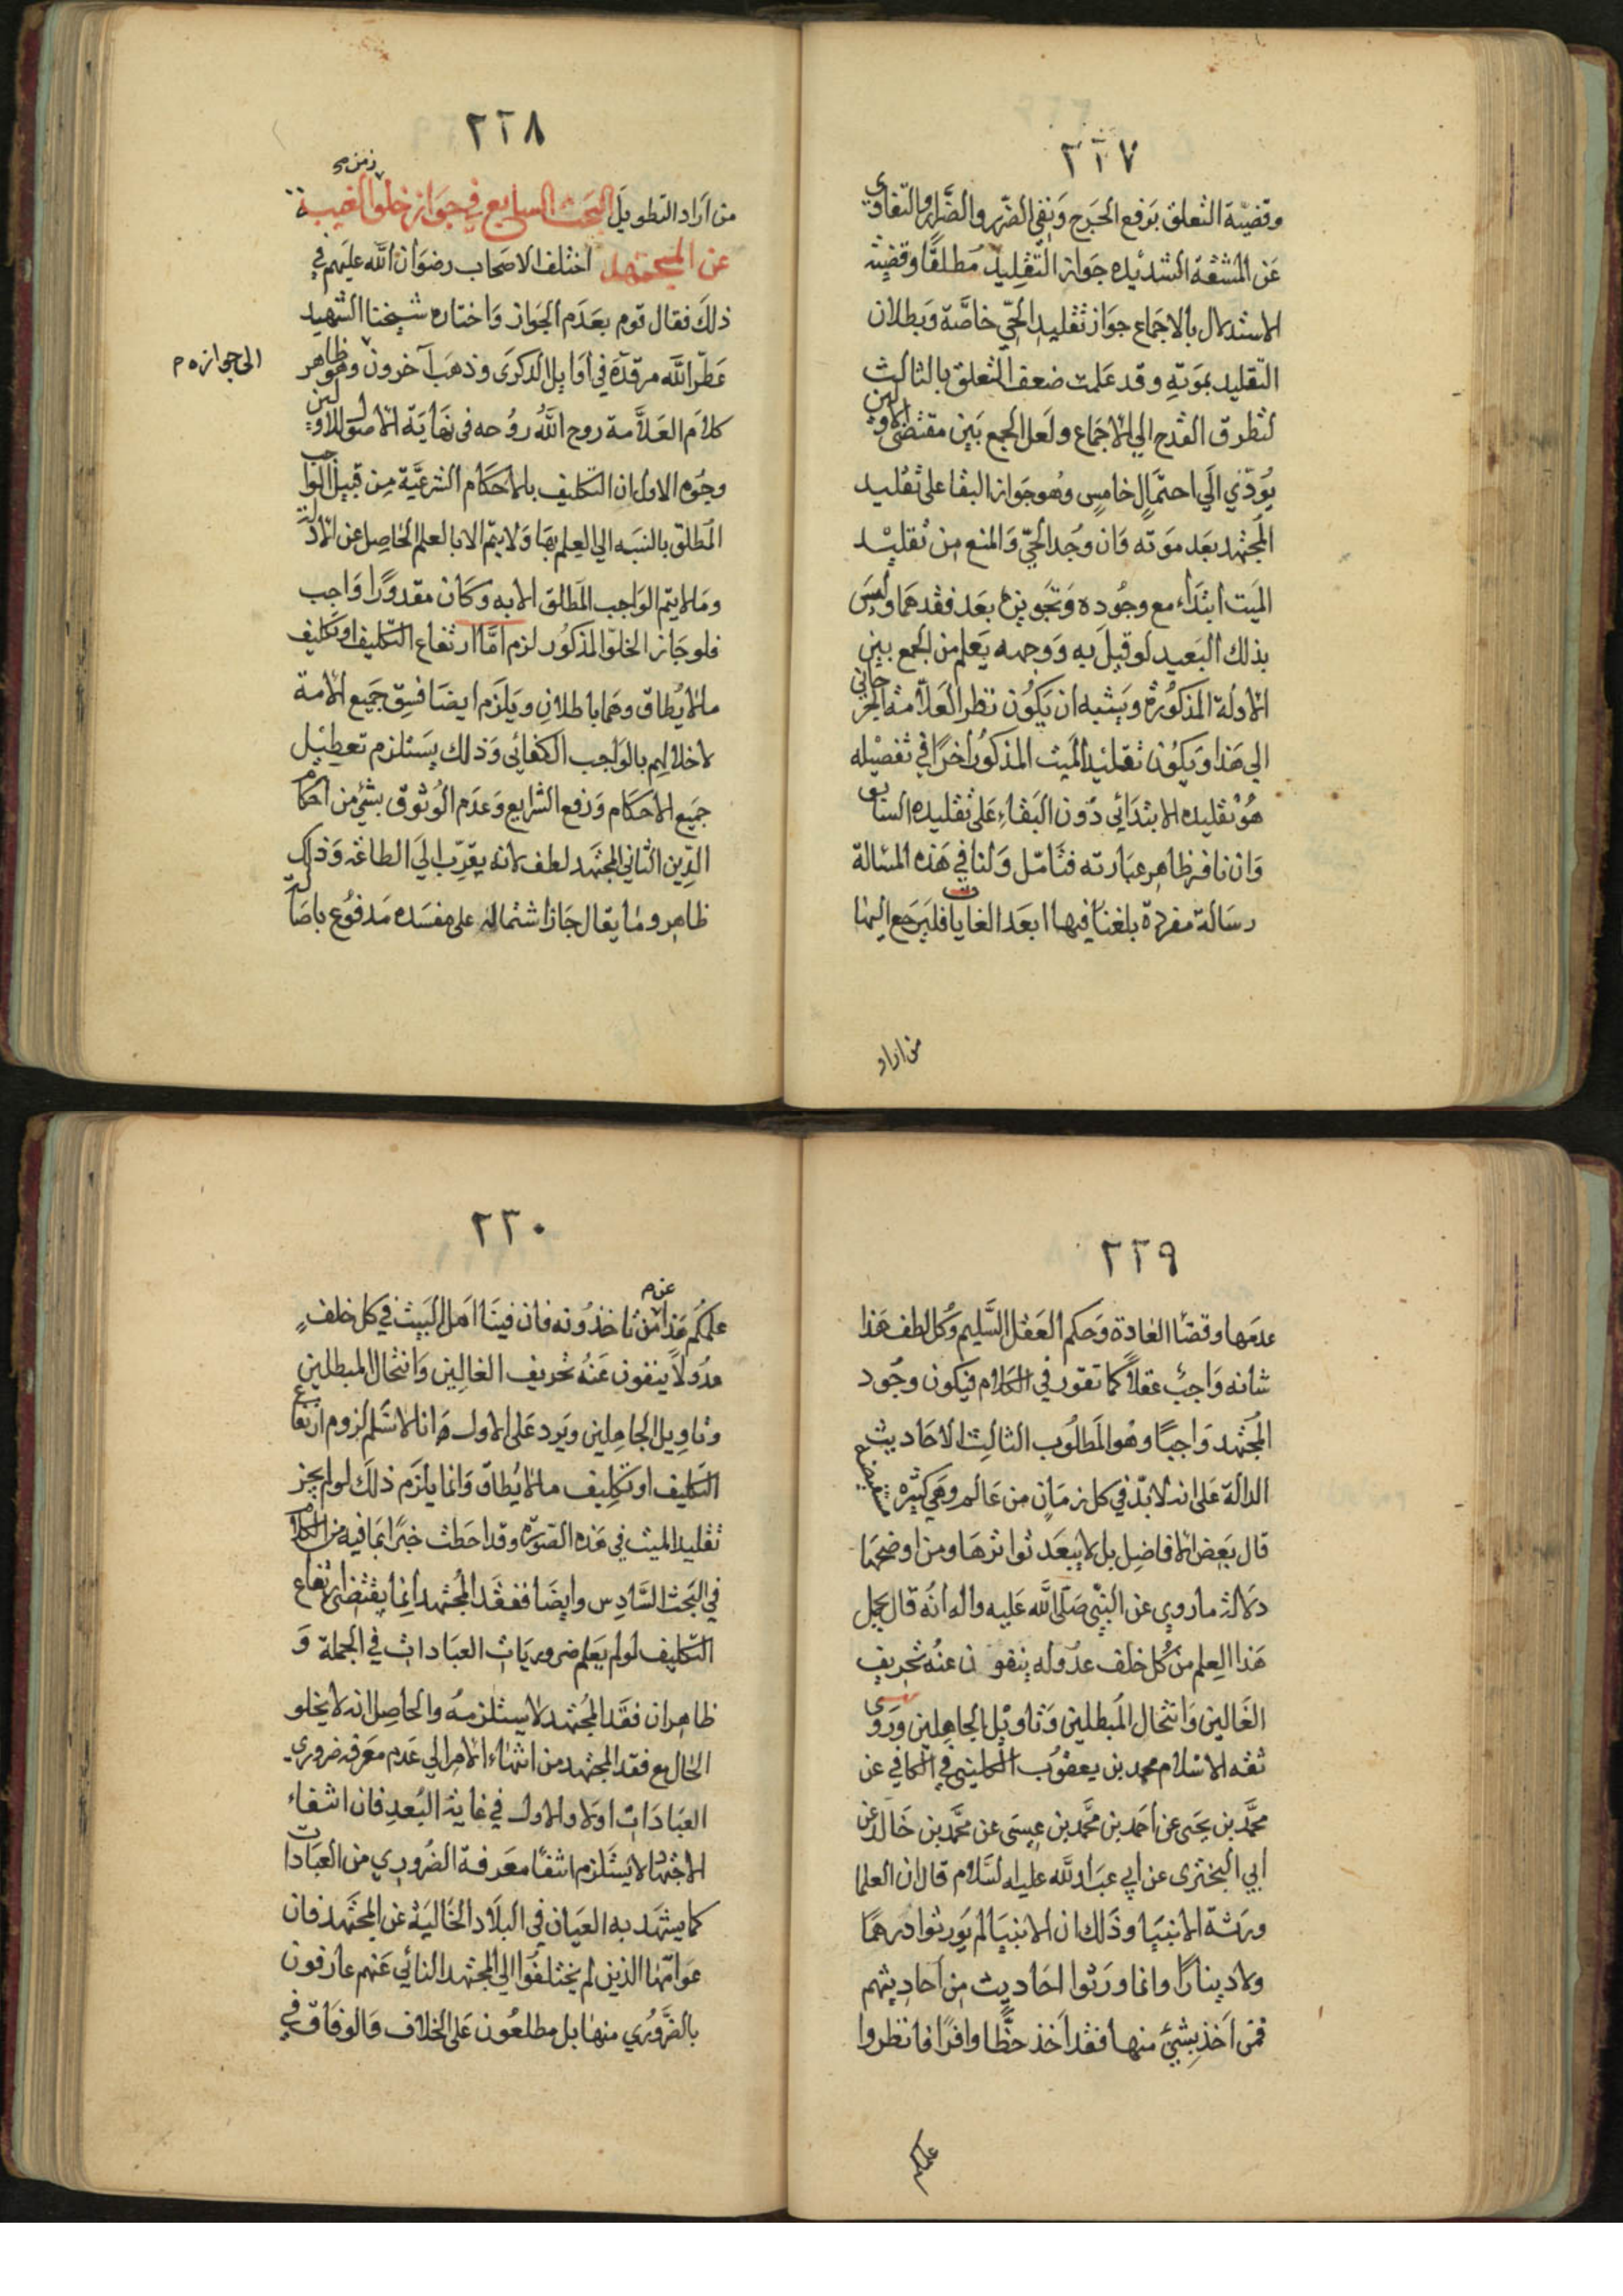 ٢٢٧
وقضيّة التعلق برفع الحرج ونفي الضرر والضرار والتفاوي
عن المشقة الشديده جواز التقليد مطلقًا وقضيّة
الاستدلال بالاجماع جواز تقليد الحيّ خاصّة وبطلان
التقليد بموته وقد علمت ضعف التعلق بالثالث
لتطرق القدح الي الاجماع ولعل الجمع بين مقتضى الاولين
يُؤدّي الَي احتمالٍ خامسٍ وهُو جواز البقا علي تقليد
المجتهد بعد موته وان وُجد الحيّ والمنع من تقليد
الميت ابتداء مع وجوده وتجويزه بعد فقدهما وليسَ
بذلك البعيد لو قيل به ووجهه يعلم من الجمع بين
الادلة المذكورة ويشبه ان يكون نظر العلّامة البحراني
الي هذا ويكون تقليد الميت المذكور اخرًا في تفصيله
هُو تقليده الابتدائي دون البقاء علي تقليده السابق
وان نافر ظاهر عبارته فتامّل ولنا في هذه المسالة
رسالة مفردة بلغنا فيها ابعد الغايات فليرجع اليها
من اراد
٢٢٨
من اراد التطويل البحث السابع في جواز خلو الغيبة
زمن
عن المجتهد اختلف الاصحاب رضوان الله عليهم في
ذلك فقال قوم بعدم الجواز واختاره شيخنا الشهيد
عطّر الله مرقده في اوايل الذكرى وذهب آخرون وهو ظاهر
الى جوازه م
كلام العلّامة روح الله روحه في نهاية الاصول للاولين
وجُوه الاول ان التكليف بالاحكام الشرعيَّة من قبيل الواجب
المطلق بالنسبه الي العلم بها ولا يتم الا بالعلم الحاصل عن الادلة
وما لا يتم الواجب المطلق الا به وكان مقدورًا واجب
فلو جاز الخلوّ المذكور لزم امّا ارتفاع التكليف او تكليف
ما لا يُطاق وهما باطلان ويلزم ايضا فسق جميع الامة
لاخلالهم بالواجب الكفائي وذلك يستلزم تعطيل
جميع الاحكام ورفع الشرايع وعدم الوثوق بشيء من احكام
الدّين الثاني المجتهد لطف لانه يقرّب الي الطاعة وذلك
ظاهر وما يقال جاز اشتماله على مفسده مدفوع باصالة
٢٢٩
عدمها وقضا العادة وحكم العقل السَّليم وكُل لطف هذا
شانه واجبٌ عقلًا كما تقرر في الكلام فيكون وجود
المجتهد واجبًا وهُو المطلوب الثالث الاحاديث
الدالة على انه لا بدّ في كل زمانٍ من عالم وهي كثيره
قال بعض الافاضل بل لا يبعد تواترها ومن اوضحها
دلالة ما روي عن النبي صلّى الله عليه واله انّه قال يحمل
هذا العلم من كُل خلف عدوله ينفون عنه تحريف
الغالين وانتحال المبطلين وتاويل الجاهلين وروى
ثقه الاسلام محمد بن يعقوب الكليني في الكافي عن
محمَّد بن يحيى عن احمد بن محمَّد بن عيسى عن محمَّد بن خالد عن
ابي البختري عن ابي عبد الله عليه السَّلام قال ان العلما
ورثة الانبيا وذلك ان الانبيا لم يورثوا درهمًا
ولا دينارًا وانما ورّثوا احاديث من احاديثهم
فمن اخذ بشيٍ منها فقد اخذ حظًّا وافرًا فانظروا
علمكم
٢٣٠
علمكُم هذا عمن تاخذونه فان فينا اهل البيت في كل خلفٍ
عدُولًا ينفون عنهُ تحريف الغالين وانتحال المبطلين
وتاويل الجاهلين ويرد على الاول انا لا نسلّم لزوم ارتفاع
التكليف او تكليف ما لا يُطاق وانما يلزم ذلك لو لم يجز
تقليد الميت في هذه الصورة وقد احطت خبرًا بما فيه من الكلام
في البحث السَّادس وايضا ففقد المجتهد انما يقتضى ارتفاع
التّكليف لو لم يعلم ضروريات العبادات في الجملة و
ظاهر ان فقد المُجتهد لا يستلزمه والحاصل انه لا يخلو
الحال مع فقد المجتهد من انتهاء الامر الي عدم معرفة ضروري
العبادات اولا والاول في غاية البُعد فان انتفاء
الاجتهاد لا يستلزم انتفا معرفة الضروري من العبادات
كما يشهد به العيان في البلاد الخالية عن المجتهد فان
عوامّها الذين لم يختلفُوا الي المجتهد النائي عنهم عارفون
بالضّروري منها بل مطلعُون على الخلاف والوفاق في